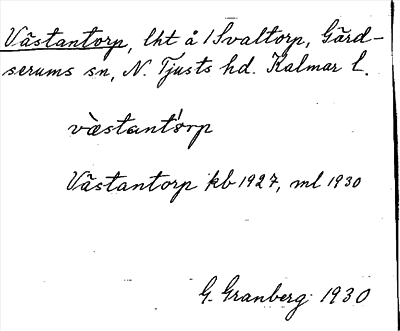 Västantorp, lht å 1 Svaltorp, Gärd-
serums sn, N. Tjusts hd. Kalmar l.
Västantorp kb 1927, ml 1930
G. Granberg 1930